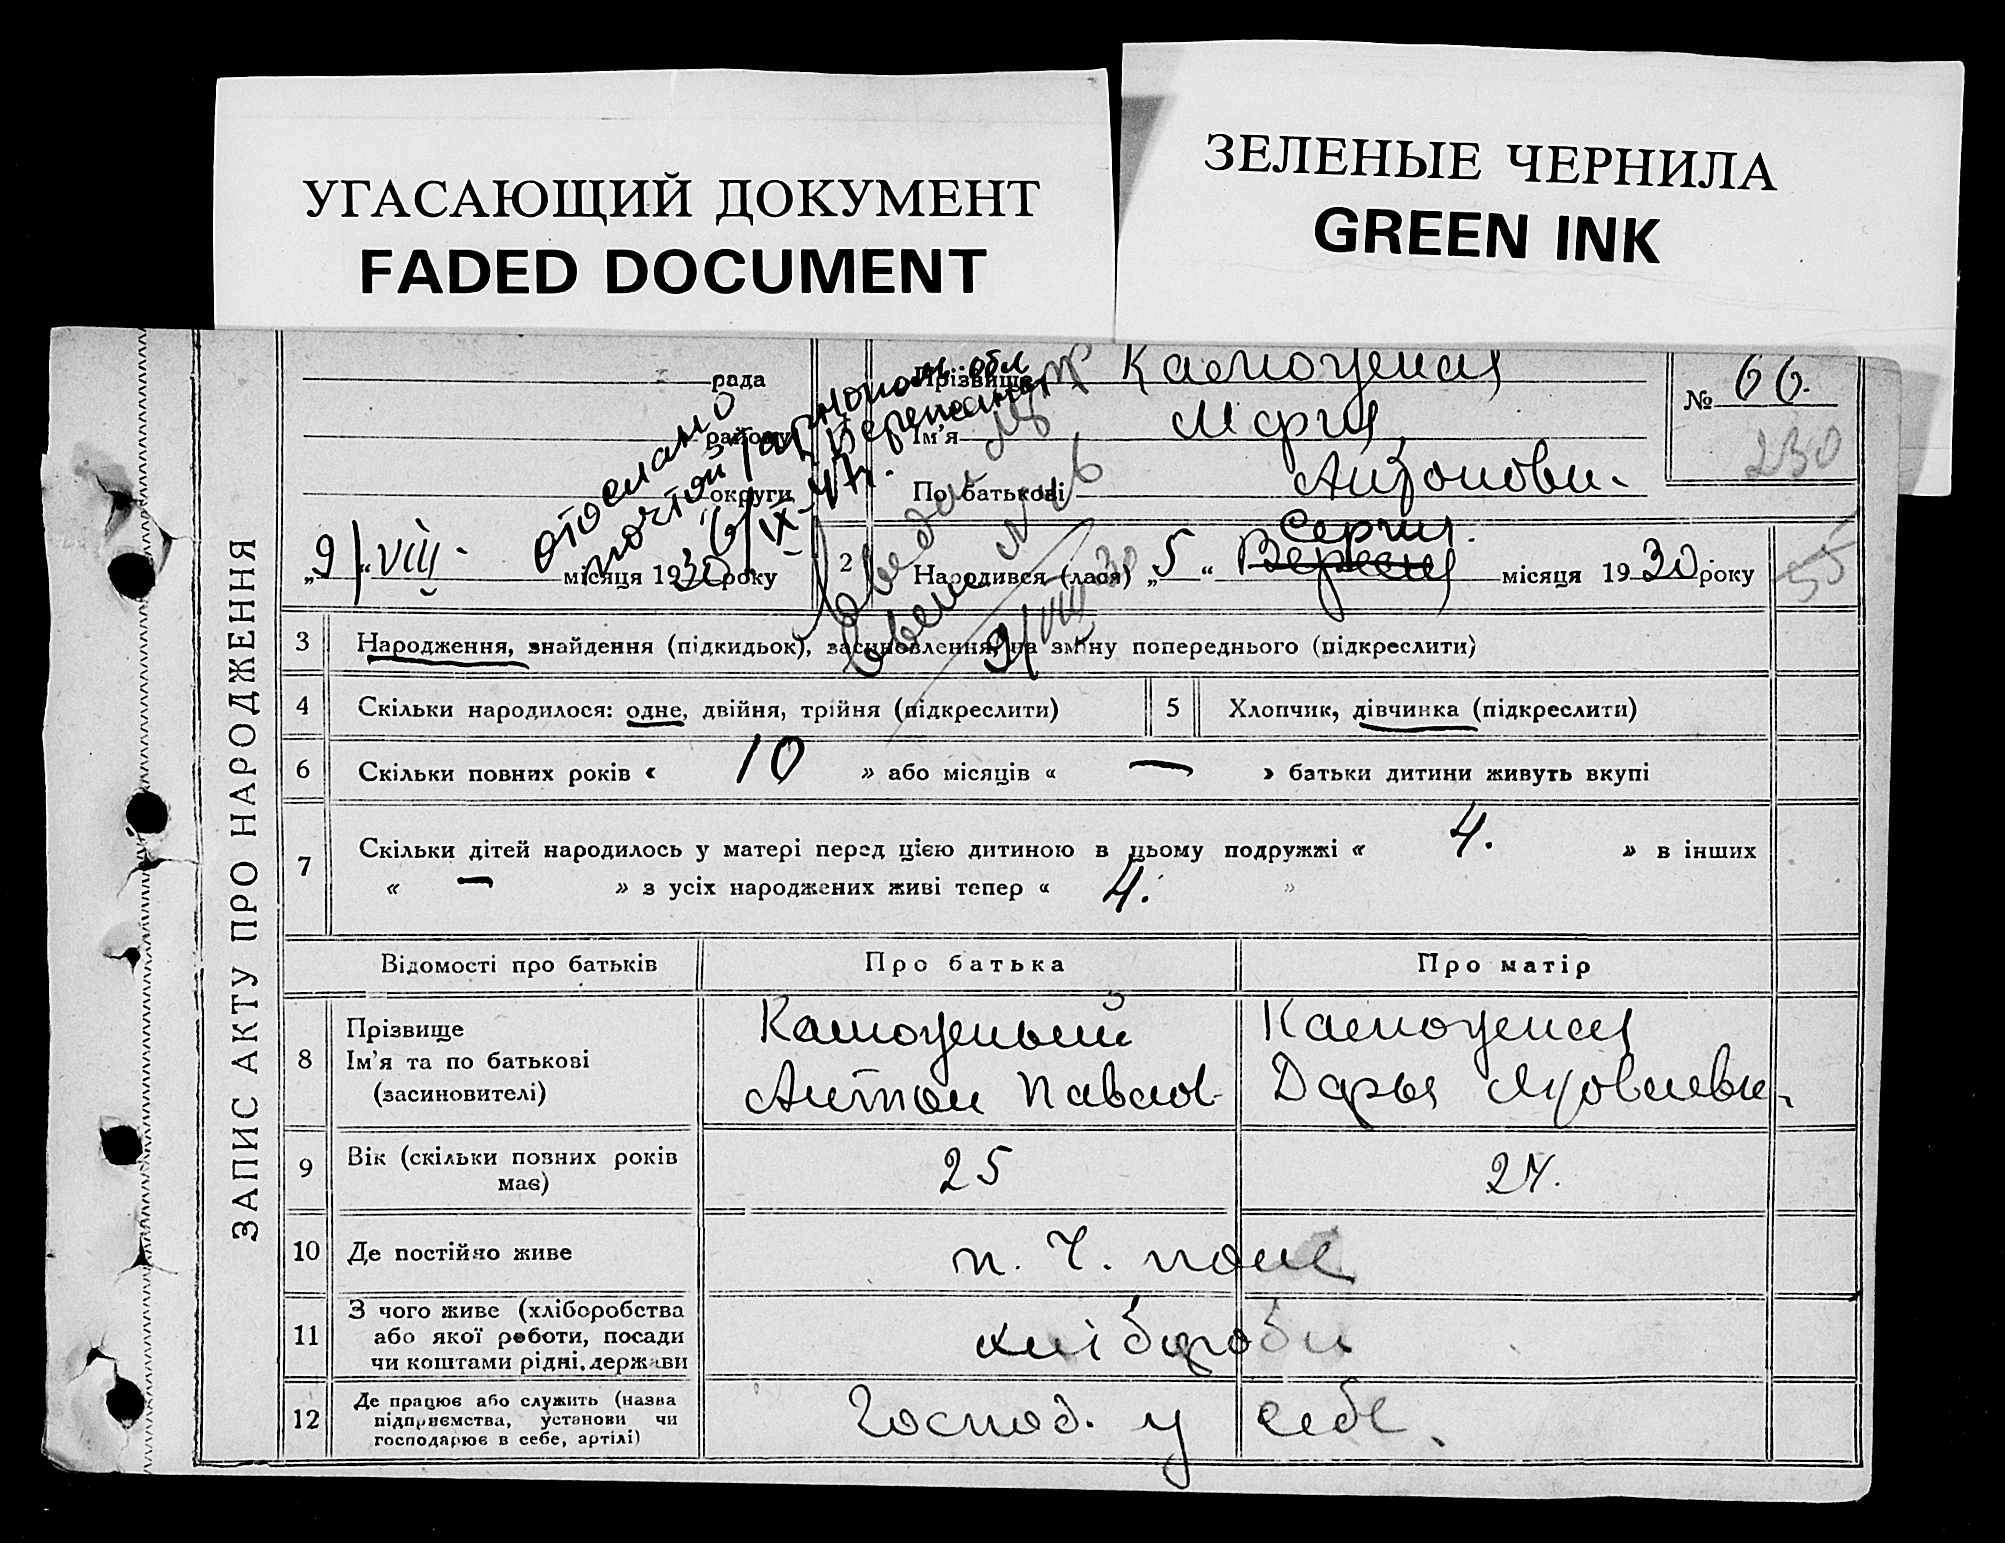 УГАСАЮЩИЙ ДОКУМЕНТ
FADED DOCUMENT
ЗЕЛЕНЫЕ ЧЕРНИЛА
GREEN INK
ЗАПИС АКТУ ПРО НАРОДЖЕННЯ
рада
району
округи
отослано
почтой
обл
6/IX-47г.
„9“ VIII місяця 1930 року
Прізвище
Ім’я Мария
По батькові Антонови-
№ 66.
230
55
2 Народився (лася) „5“ Серпня. Вересня місяця 1930 року
9/VIII 30
3 Народження, знайдення (підкидьок), засиновлення, на зміну попереднього (підкреслити)
4 Скільки народилося: одне, двійня, трійня (підкреслити) 5 Хлопчик, дівчинка (підкреслити)
6 Скільки повних років « 10 » або місяців « — » батьки дитини живуть вкупі
7 Скільки дітей народилось у матері перед цією дитиною в цьому подружжі « 4. » в інших
« — » з усіх народжених живі тепер « 4. »
Відомості про батьків Про батька Про матір
8 Прізвище
Ім’я та по батькові
(засиновителі)
Антон Павлов-
Дарья Яковлевн-
9 Вік (скільки повних років
має) 25 24.
10 Де постійно живе п. Ч. поле
11 З чого живе (хліборобства
або якої роботи, посади
чи коштами рідні, держави
хлібороби
12 Де працює або служить (назва
підприємства, установи чи
господарює в себе, артілі)
Господ. у себе.